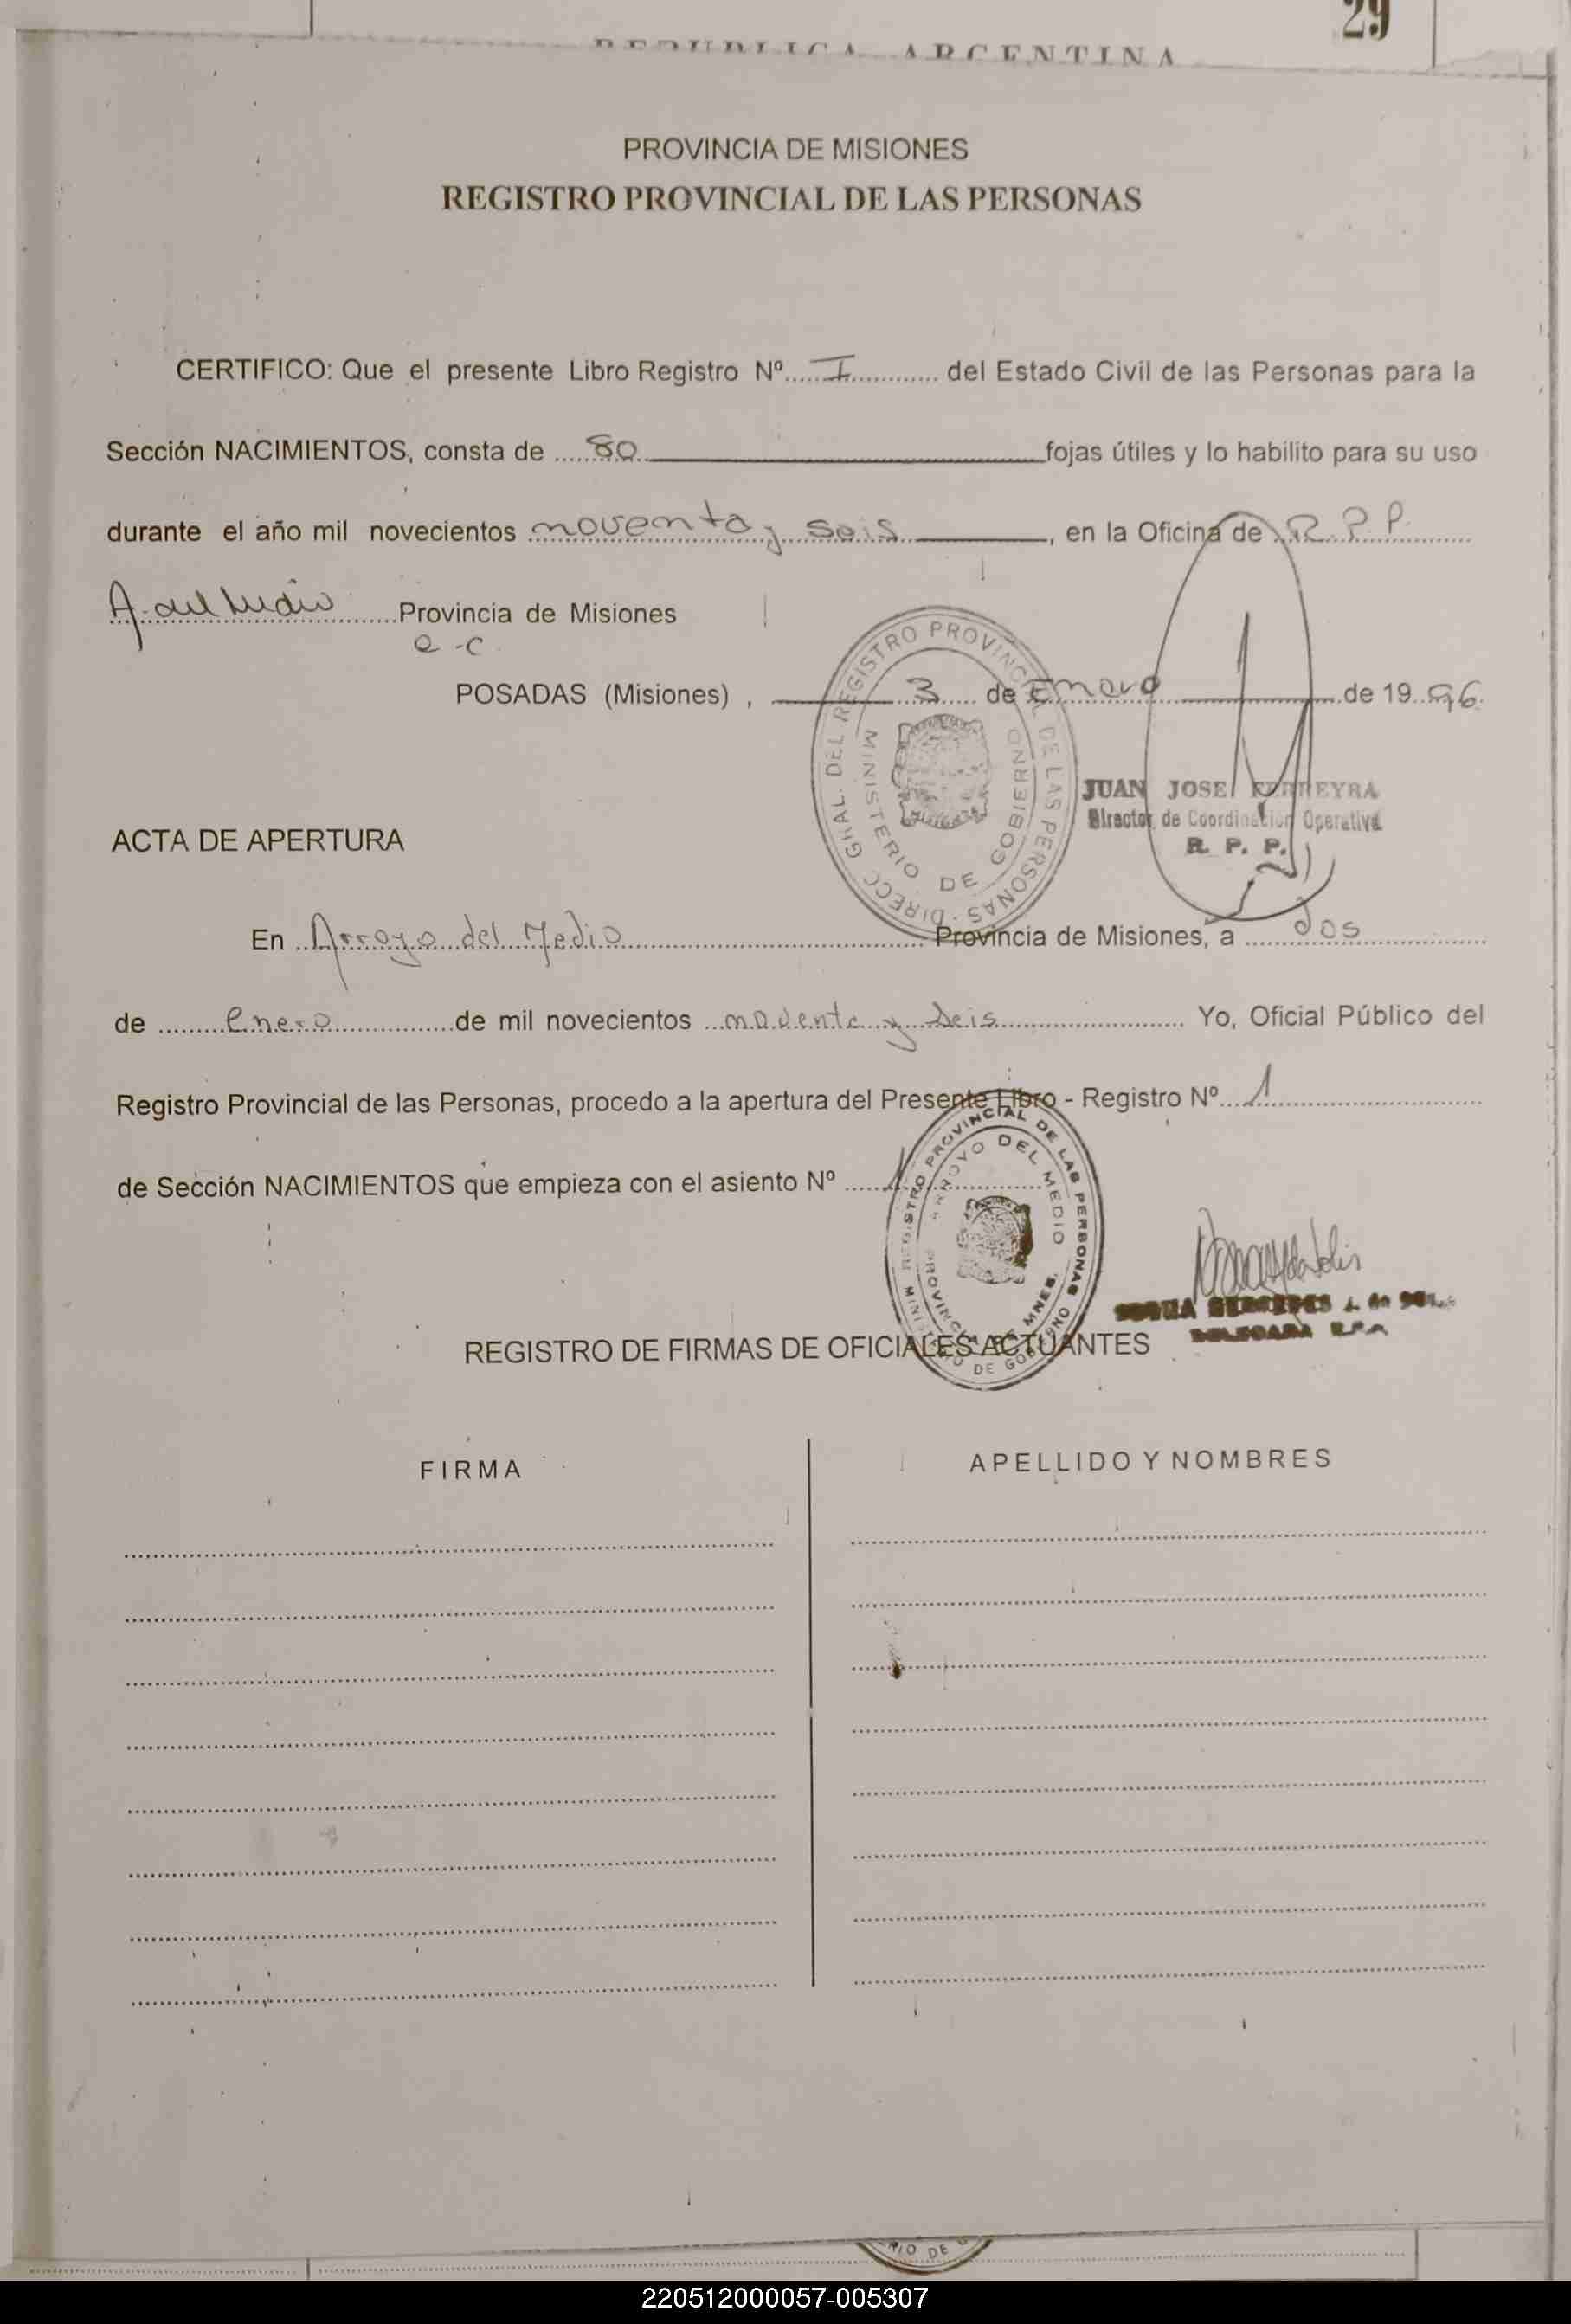 29
REPUBLICA ARGENTINA
PROVINCIA DE MISIONES
REGISTRO PROVINCIAL DE LAS PERSONAS
CERTIFICO: Que el presente Libro Registro Nº I del Estado Civil de las Personas para la
Sección NACIMIENTOS, consta de 80 fojas útiles y lo habilito para su uso
durante el año mil novecientos noventa y seis, en la Oficina de R.P.P.
A. del Medio Provincia de Misiones
e-c.
POSADAS (Misiones), 3 de Enero de 1996.
DIRECC GRAL. DEL REGISTRO PROVINCIAL DE LAS PERSONAS
MINISTERIO DE GOBIERNO
JUAN JOSE FERREYRA
Director de Coordinación Operativa
R. P. P.
ACTA DE APERTURA
En Arroyo del Medio Provincia de Misiones, a dos
de enero de mil novecientos noventa y seis Yo, Oficial Público del
Registro Provincial de las Personas, procedo a la apertura del Presente Libro - Registro Nº 1
de Sección NACIMIENTOS que empieza con el asiento Nº 1
REGISTRO PROVINCIAL DE LAS PERSONAS
MINISTERIO DE GOBIERNO
ARROYO DEL MEDIO
PROVINCIA DE MNES.
MERCEDES
DELEGADA R.P.P.
REGISTRO DE FIRMAS DE OFICIALES ACTUANTES
FIRMA
APELLIDO Y NOMBRES
RIO DE G
220512000057-005307